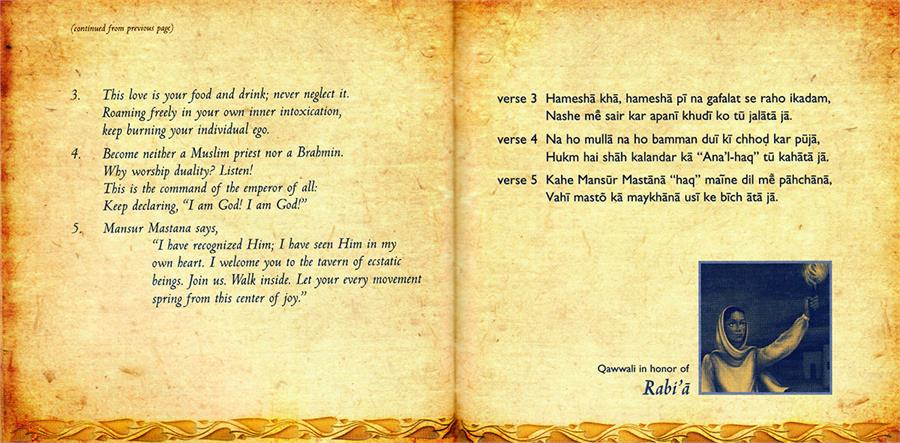 (continued from previous page)
3. This love is your food and drink; never neglect it.
Roaming freely in your own inner intoxication,
keep burning your individual ego.
4. Become neither a Muslim priest nor a Brahmin.
Why worship duality? Listen!
This is the command of the emperor of all:
Keep declaring, “I am God! I am God!”
5. Mansur Mastana says,
“I have recognized Him; I have seen Him in my
own heart. I welcome you to the tavern of ecstatic
beings. Join us. Walk inside. Let your every movement
spring from this center of joy.”
verse 3 Hameshā khā, hameshā pī na gafalat se raho ikadam,
Nashe mẽ sair kar apanī khudī ko tū jalātā jā.
verse 4 Na ho mullā na ho bamman duī kī chhoḍ kar pūjā,
Hukm hai shāh kalandar kā “Ana’l-haq” tū kahātā jā.
verse 5 Kahe Mansūr Mastānā “haq” maĩne dil mẽ pāhchānā,
Vahī mastõ kā maykhānā usī ke bīch ātā jā.
Qawwali in honor of
Rabi’ā